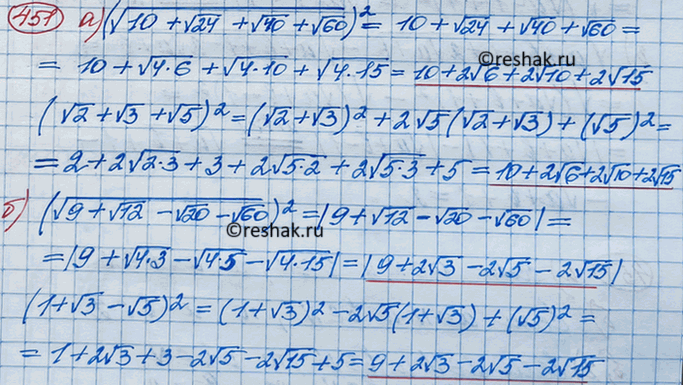 451 а) (√(10 + √24 + √40 + √60))² = 10 + √24 + √40 + √60 =
©reshak.ru
= 10 + √(4·6) + √(4·10) + √(4·15) = 10 + 2√6 + 2√10 + 2√15
(√2 + √3 + √5)² = (√2 + √3)² + 2√5(√2 + √3) + (√5)² =
= 2 + 2√(2·3) + 3 + 2√(5·2) + 2√(5·3) + 5 = 10 + 2√6 + 2√10 + 2√15
б) (√(9 + √12 - √20 - √60))² = |9 + √12 - √20 - √60| =
©reshak.ru
= |9 + √(4·3) - √(4·5) - √(4·15)| = |9 + 2√3 - 2√5 - 2√15|
(1 + √3 - √5)² = (1 + √3)² - 2√5(1 + √3) + (√5)² =
= 1 + 2√3 + 3 - 2√5 - 2√15 + 5 = 9 + 2√3 - 2√5 - 2√15